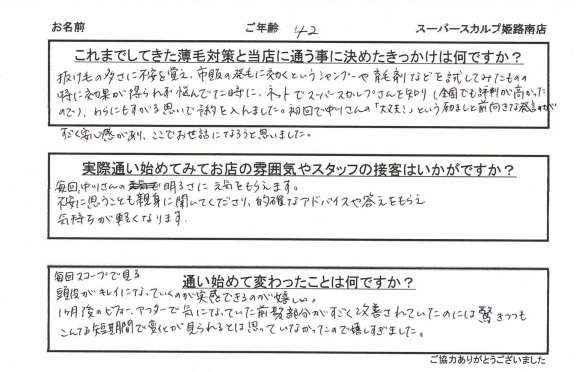 お名前 ご年齢 42 スーパースカルプ姫路南店
これまでしてきた薄毛対策と当店に通う事に決めたきっかけは何ですか？
抜け毛の多さに不安を覚え、市販の発毛に効くというシャンプーや育毛剤などを試してみたものの
特に効果が得られず悩んでた時に、ネットでスーパースカルプさんを知り（全国でも評判が高かった
ので）、わらにもすがる思いで予約を入れました。初回で中川さんの「大丈夫！」という励ましと前向きな発言が
すごく安心感があり、ここでお世話になろうと思いました。
実際通い始めてみてお店の雰囲気やスタッフの接客はいかがですか？
毎回、中川さんの 明るさに元気をもらえます。
不安に思うことも親身に聞いてくださり、的確なアドバイスや答えをもらえ
気持ちが軽くなります。
通い始めて変わったことは何ですか？
毎回スコープで見る
頭皮がキレイになっていくのが実感できるのが嬉しい。
1ヶ月後のビフォーアフターで気になっていた前髪部分がすごく改善されていたのには驚きつつも
こんな短期間で変化が見られるとは思っていなかったので嬉しすぎました。
ご協力ありがとうございました